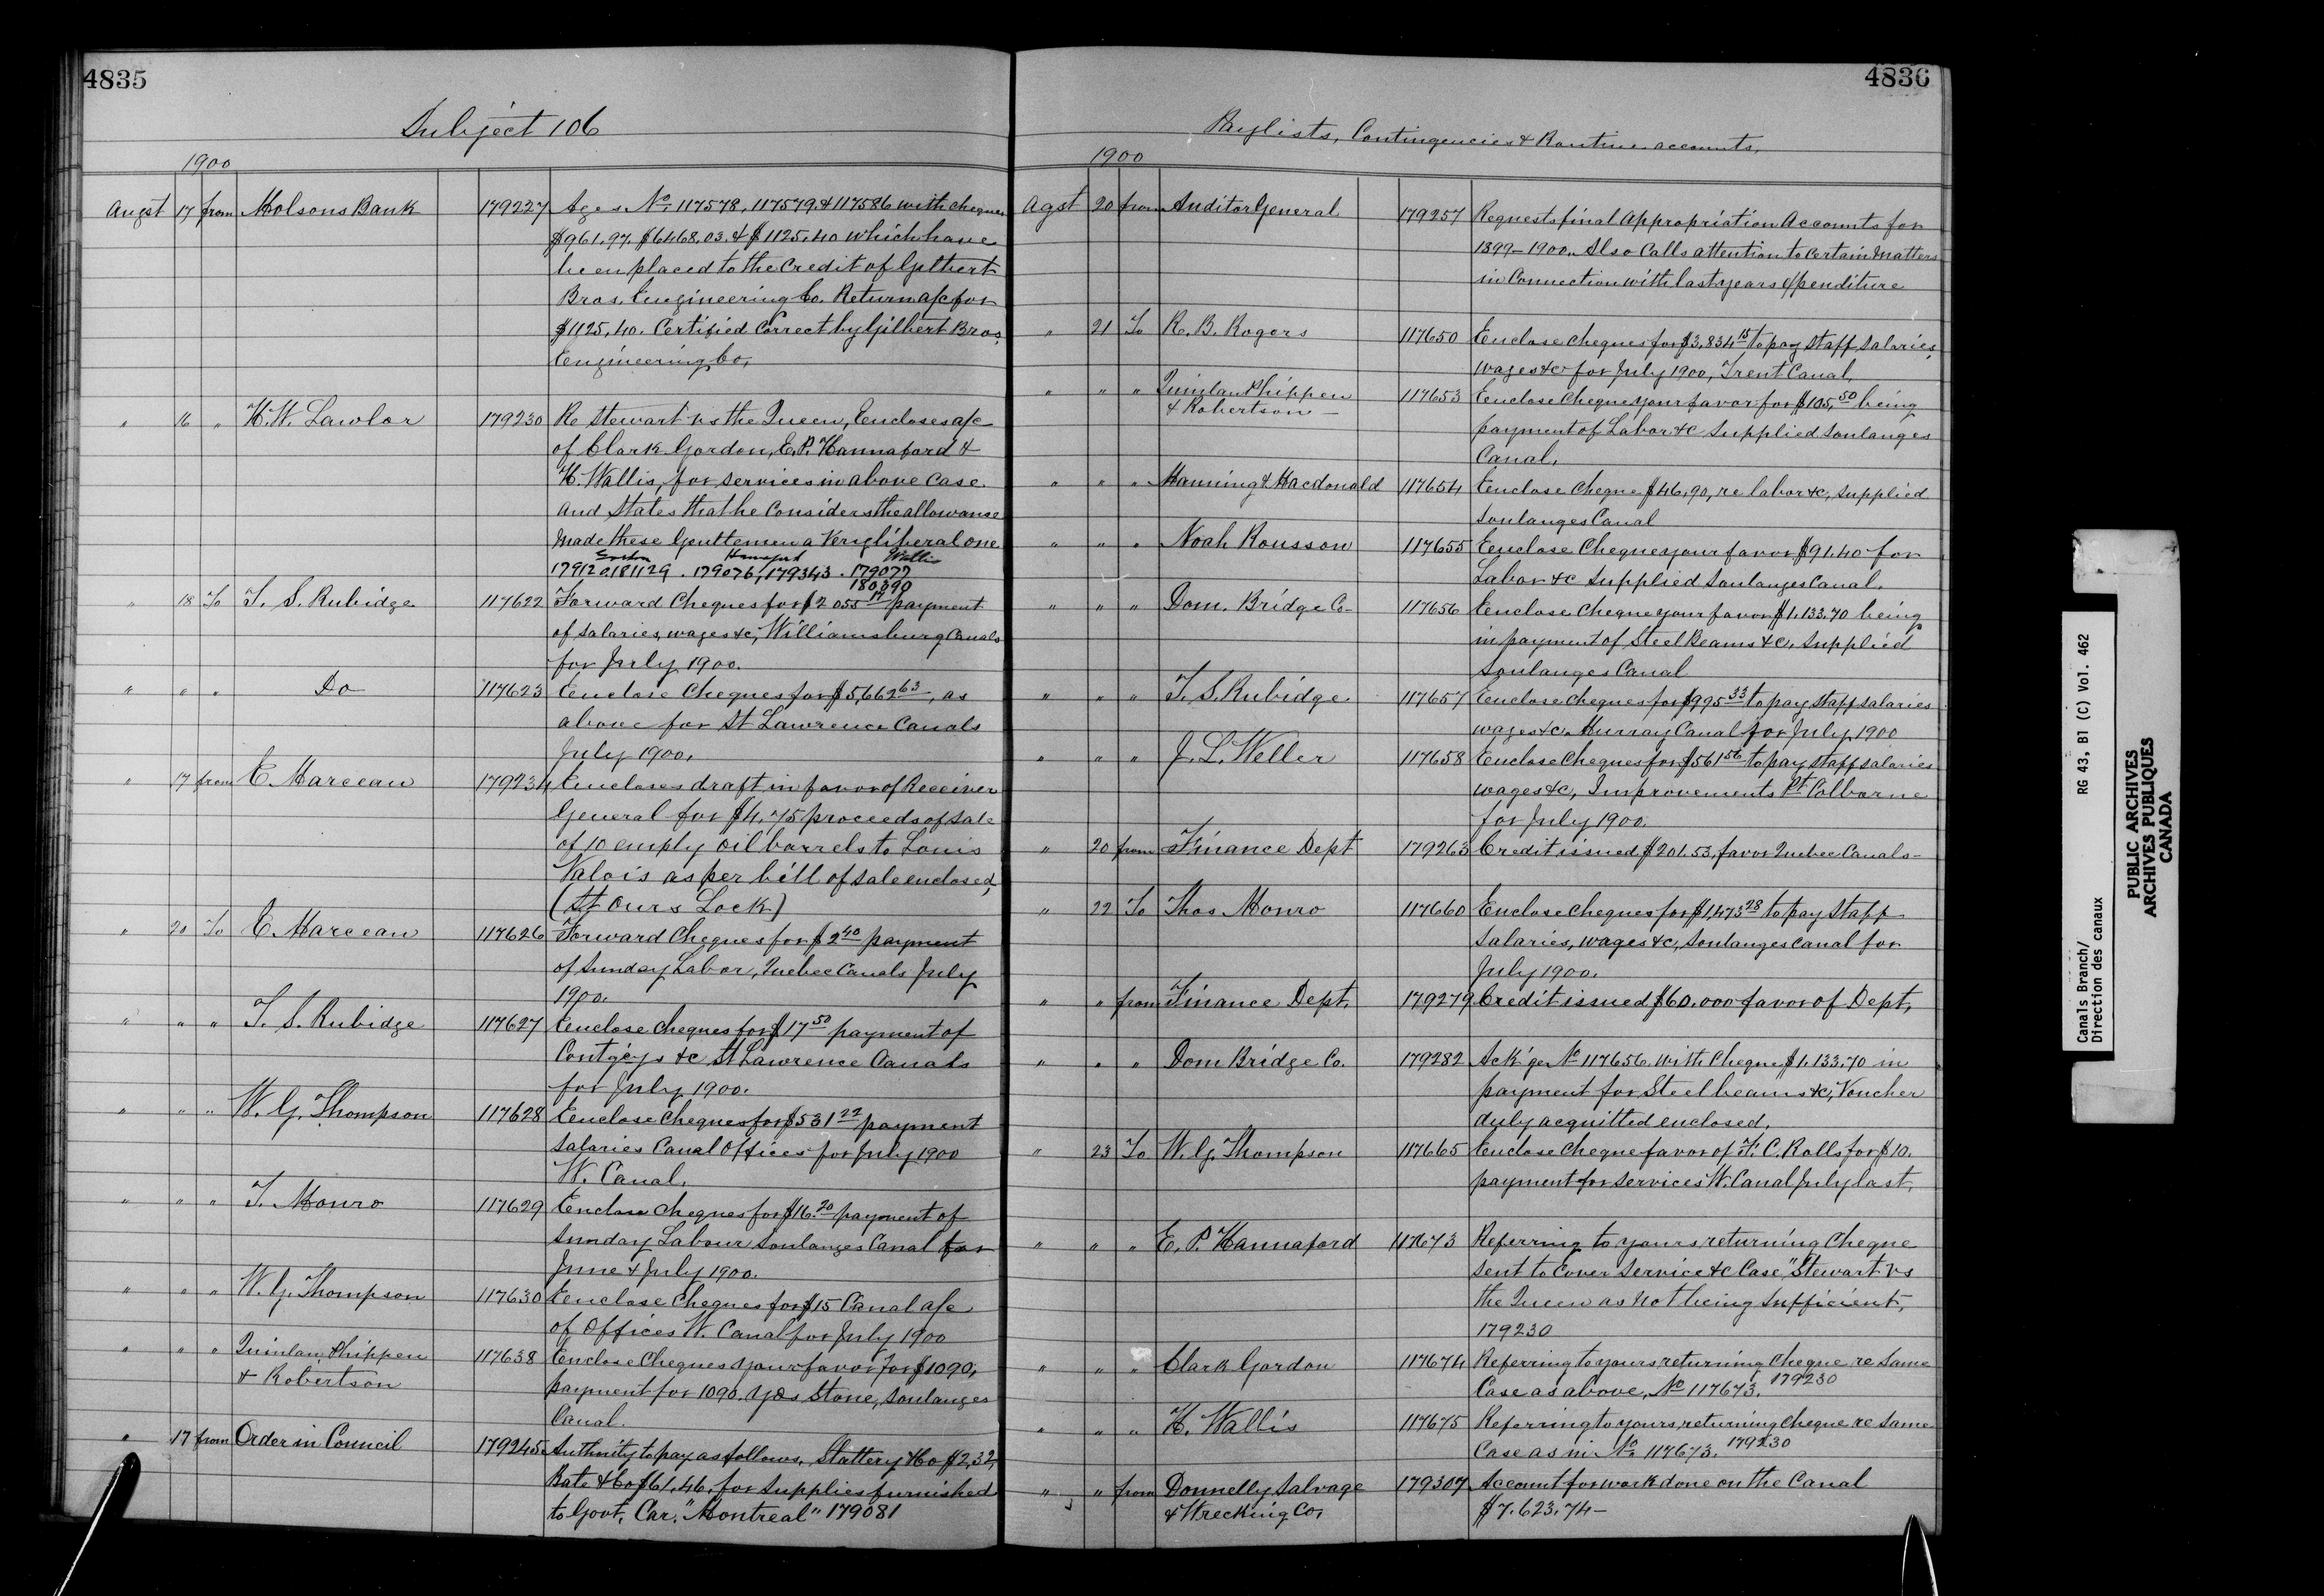 4835
Subject 106
1900
Augst 17 from Molsons Bank 179227 Ages No. 117578, 117579 & 117586 with cheques
$961.97. $6468.03. & $1125.40 which have
been placed to the credit of Gilbert
Bros. Engineering Co. Return a/c for
$1125.40. Certified Correct by Gilbert Bros
Engineering Co,
" 16 " H. W. Lawlor 179230 Re Stewart vs the Queen, Encloses a/c
of Clark Gordon, E. P. Hannaford &
H. Wallis, for services in above Case
and States that he Considers the allowance
Made these Gentlemen a Very liberal one
Gordon Hannaford Wallis
179120, 181129 . 179076, 179343 . 179077
180390
" 18 To T. S. Rubidge 117622 Forward Cheques for $2055 17 payment
of salaries, wages &c, Williamsburg Canals
for July 1900.
" " " Do 117623 Enclose Cheques for $5,662 63, as
above for St Lawrence Canals
July 1900.
" 17 from E. Marceau 179234 Encloses draft in favor of Receiver
General for $4.75 proceeds of sale
of 10 empty oil barrels to Louis
Valois as per bill of sale enclosed,
(St Ours Lock)
" 20 To E. Marceau 117626 Forward Cheques for $2 40 payment
of Sunday Labor, Quebec Canals July
1900.
" " " T. S. Rubidge 117627 Enclose cheques for $17 50 payment of
Contg'cys &c St Lawrence Canals
for July 1900.
" " " W. G. Thompson 117628 Enclose Cheques for $531 22 payment
Salaries Canal Offices for July 1900
W. Canal.
" " " T. Monro 117629 Enclose Cheques for $16.20 payment of
Sunday Labour Soulanges Canal for
June & July 1900.
" " " W. G. Thompson 117630 Enclose Cheques for $15 Canal a/c
of Offices W. Canal for July 1900
" " " Quinlan Phippen 117638 Enclose Cheques your favor for $1090,
& Robertson payment for 1090. Yds Stone, Soulanges
Canal.
" 17 from Order in Council 179245 Authority to pay as follows, Slattery & Co $2,32,
Bate & Co $61.46, for supplies furnished
to Govt. Car. "Montreal" 179081
4836
Paylists, Contingencies & Routine accounts.
1900
Agst 20 from Auditor General 179257 Requests final Appropriation Accounts for
1899-1900. Also Calls attention to Certain Matters
in Connection with last years expenditure
" 21 To R. B. Rogers 117650 Enclose cheques for $3,834 15 to pay staff salaries,
wages &c for July 1900, Trent Canal.
" " " Quinlan Phippen 117653 Enclose Cheque your favor for $105.50 being
& Robertson - payment of Labor &c supplied Soulanges
Canal.
" " " Manning & Macdonald 117654 Enclose Cheque $46.90, re labor &c, supplied
Soulanges Canal
" " " Noah Rousson 117655 Enclose Cheque your favor $91.40 for
Labor &c supplied Soulanges Canal.
" " " Dom. Bridge Co- 117656 Enclose Cheque your favor $1,133.70 being
in payment of Steel Beams &c, supplied
Soulanges Canal
" " " T. S. Rubidge 117657 Enclose cheques for $995 33 to pay staff salaries
wages &c, Murray Canal for July 1900
" " " J. L. Weller 117658 Enclose Cheques for $561 56 to pay staff salaries
wages &c, Improvements Pt Colborne
for July 1900.
" 20 from Finance Dept 179263 Credit issued $201.53, favor Quebec Canals-
" 22 To Thos Monro 117660 Enclose cheques for $1,473 28 to pay Staff
Salaries, wages &c, Soulanges Canal for
July 1900.
" " from Finance Dept. 179279 Credit issued $60.000 favor of Dept,
" " " Dom Bridge Co. 179282 Ack'ge No 117656. with Cheque $1,133.70 in
payment for Steel beams &c, Voucher
duly acquitted enclosed.
" 23 To W. G. Thompson 117665 Enclose Cheque favor of F. C. Rolls for $10.
payment for services W. Canal July last.
" " " E. P. Hannaford 117673 Referring to yours returning Cheque
sent to cover service &c Case "Stewart vs
the Queen as not being sufficient,
179230
" " " Clark Gordon 117674 Referring to yours, returning cheque re same
Case as above, No 117673. 179230
" " " H. Wallis 117675 Referring to yours, returning cheque re same
Case as in No 117673. 179230
" " from Donnelly Salvage 179307 Account for work done on the Canal
& Wrecking Co, $7.623.74-
Canals Branch/
Direction des canaux
RG 43, B1 (C) Vol. 462
PUBLIC ARCHIVES
ARCHIVES PUBLIQUES
CANADA